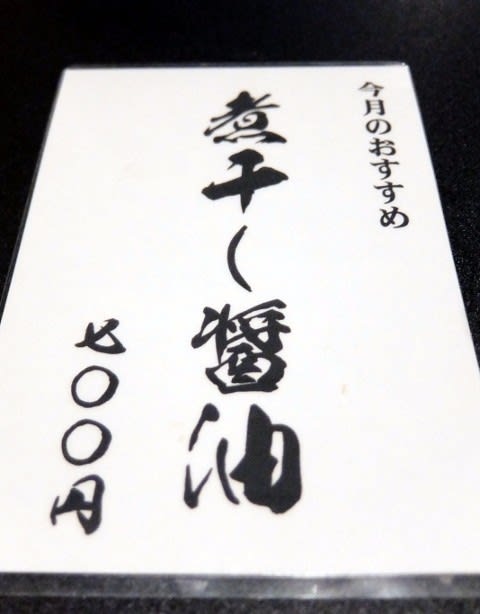 今月のおすすめ
煮干し醤油
七〇〇円